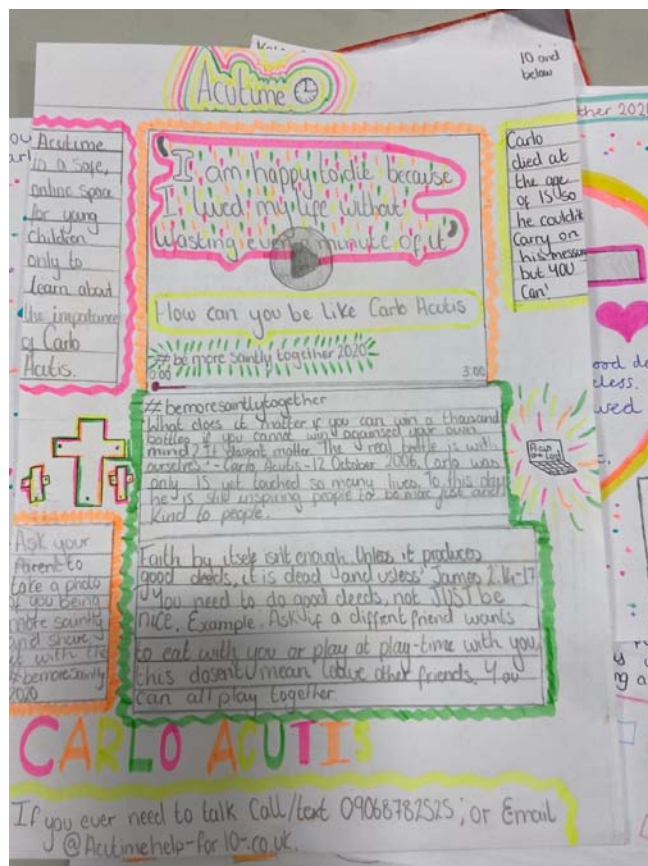 Acutime
10 and
below
Acutime
is a safe,
online space
for young
children
only to
learn about
the importance
of Carlo
Acutis.
I am happy to die because
I lived my life without
Wasting even a minute of it
How can you be like Carlo Acutis
# be more saintly together 2020
0:00
3:00
Carlo
died at
the age
of 15 so
he could't
Carry on
his message
but YOU
Can!
# bemoresaintlytogether
'What does it matter if you can win a thousand
battles if you cannot win againsed your own
mind? It dosent matter. The real battle is with
ourselves' - Carlo Acutis - 12 October 2006. Carlo was
only 15 yet touched so many lives. To this day
he is still inspiring people to be more just and
kind to people.
Faith by itself isn't enough. Unless it produces
good deeds, it is dead and usless' James 2.14-17
You need to do good deeds, not JUST be
nice. Example. Ask if a diffent friend wants
to eat with you or play at play-time with you,
this dosent mean leave other friends. You
can all play together.
Ask your
Parent to
take a photo
of you being
more saintly
and share
it with the
#bemoresaintly
2020
CARLO ACUTIS
If you ever need to talk Call/text 09068782525; or Email
@Acutimehelp-for 10-.co.uk.